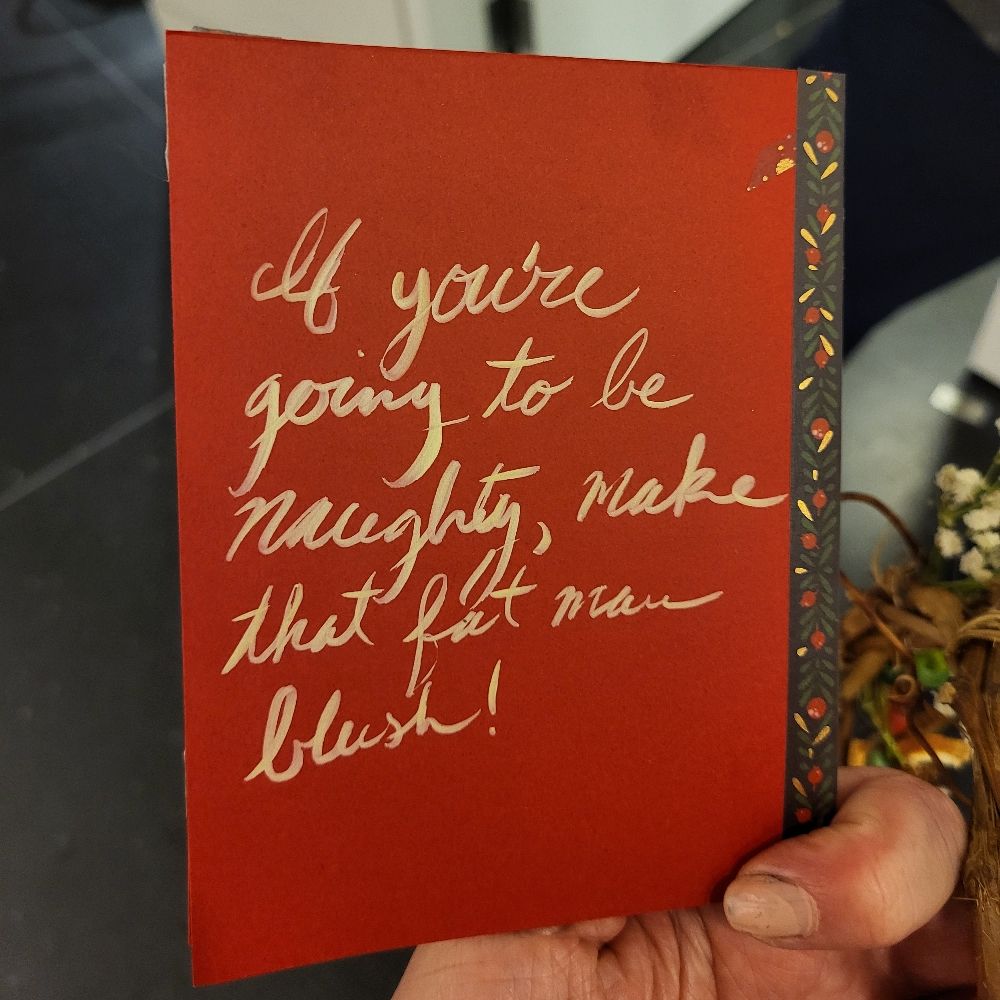 If you're
going to be
naughty, make
that fat man
blush!